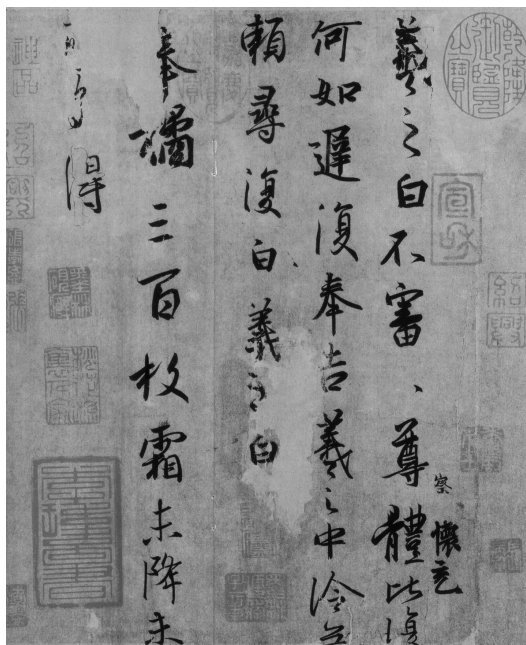 羲之白不審、尊體比復
察
懷充
何如遲復奉告羲之中冷無
賴尋復白羲之白
奉橘三百枚霜未降未
可多得
宣和
紹興